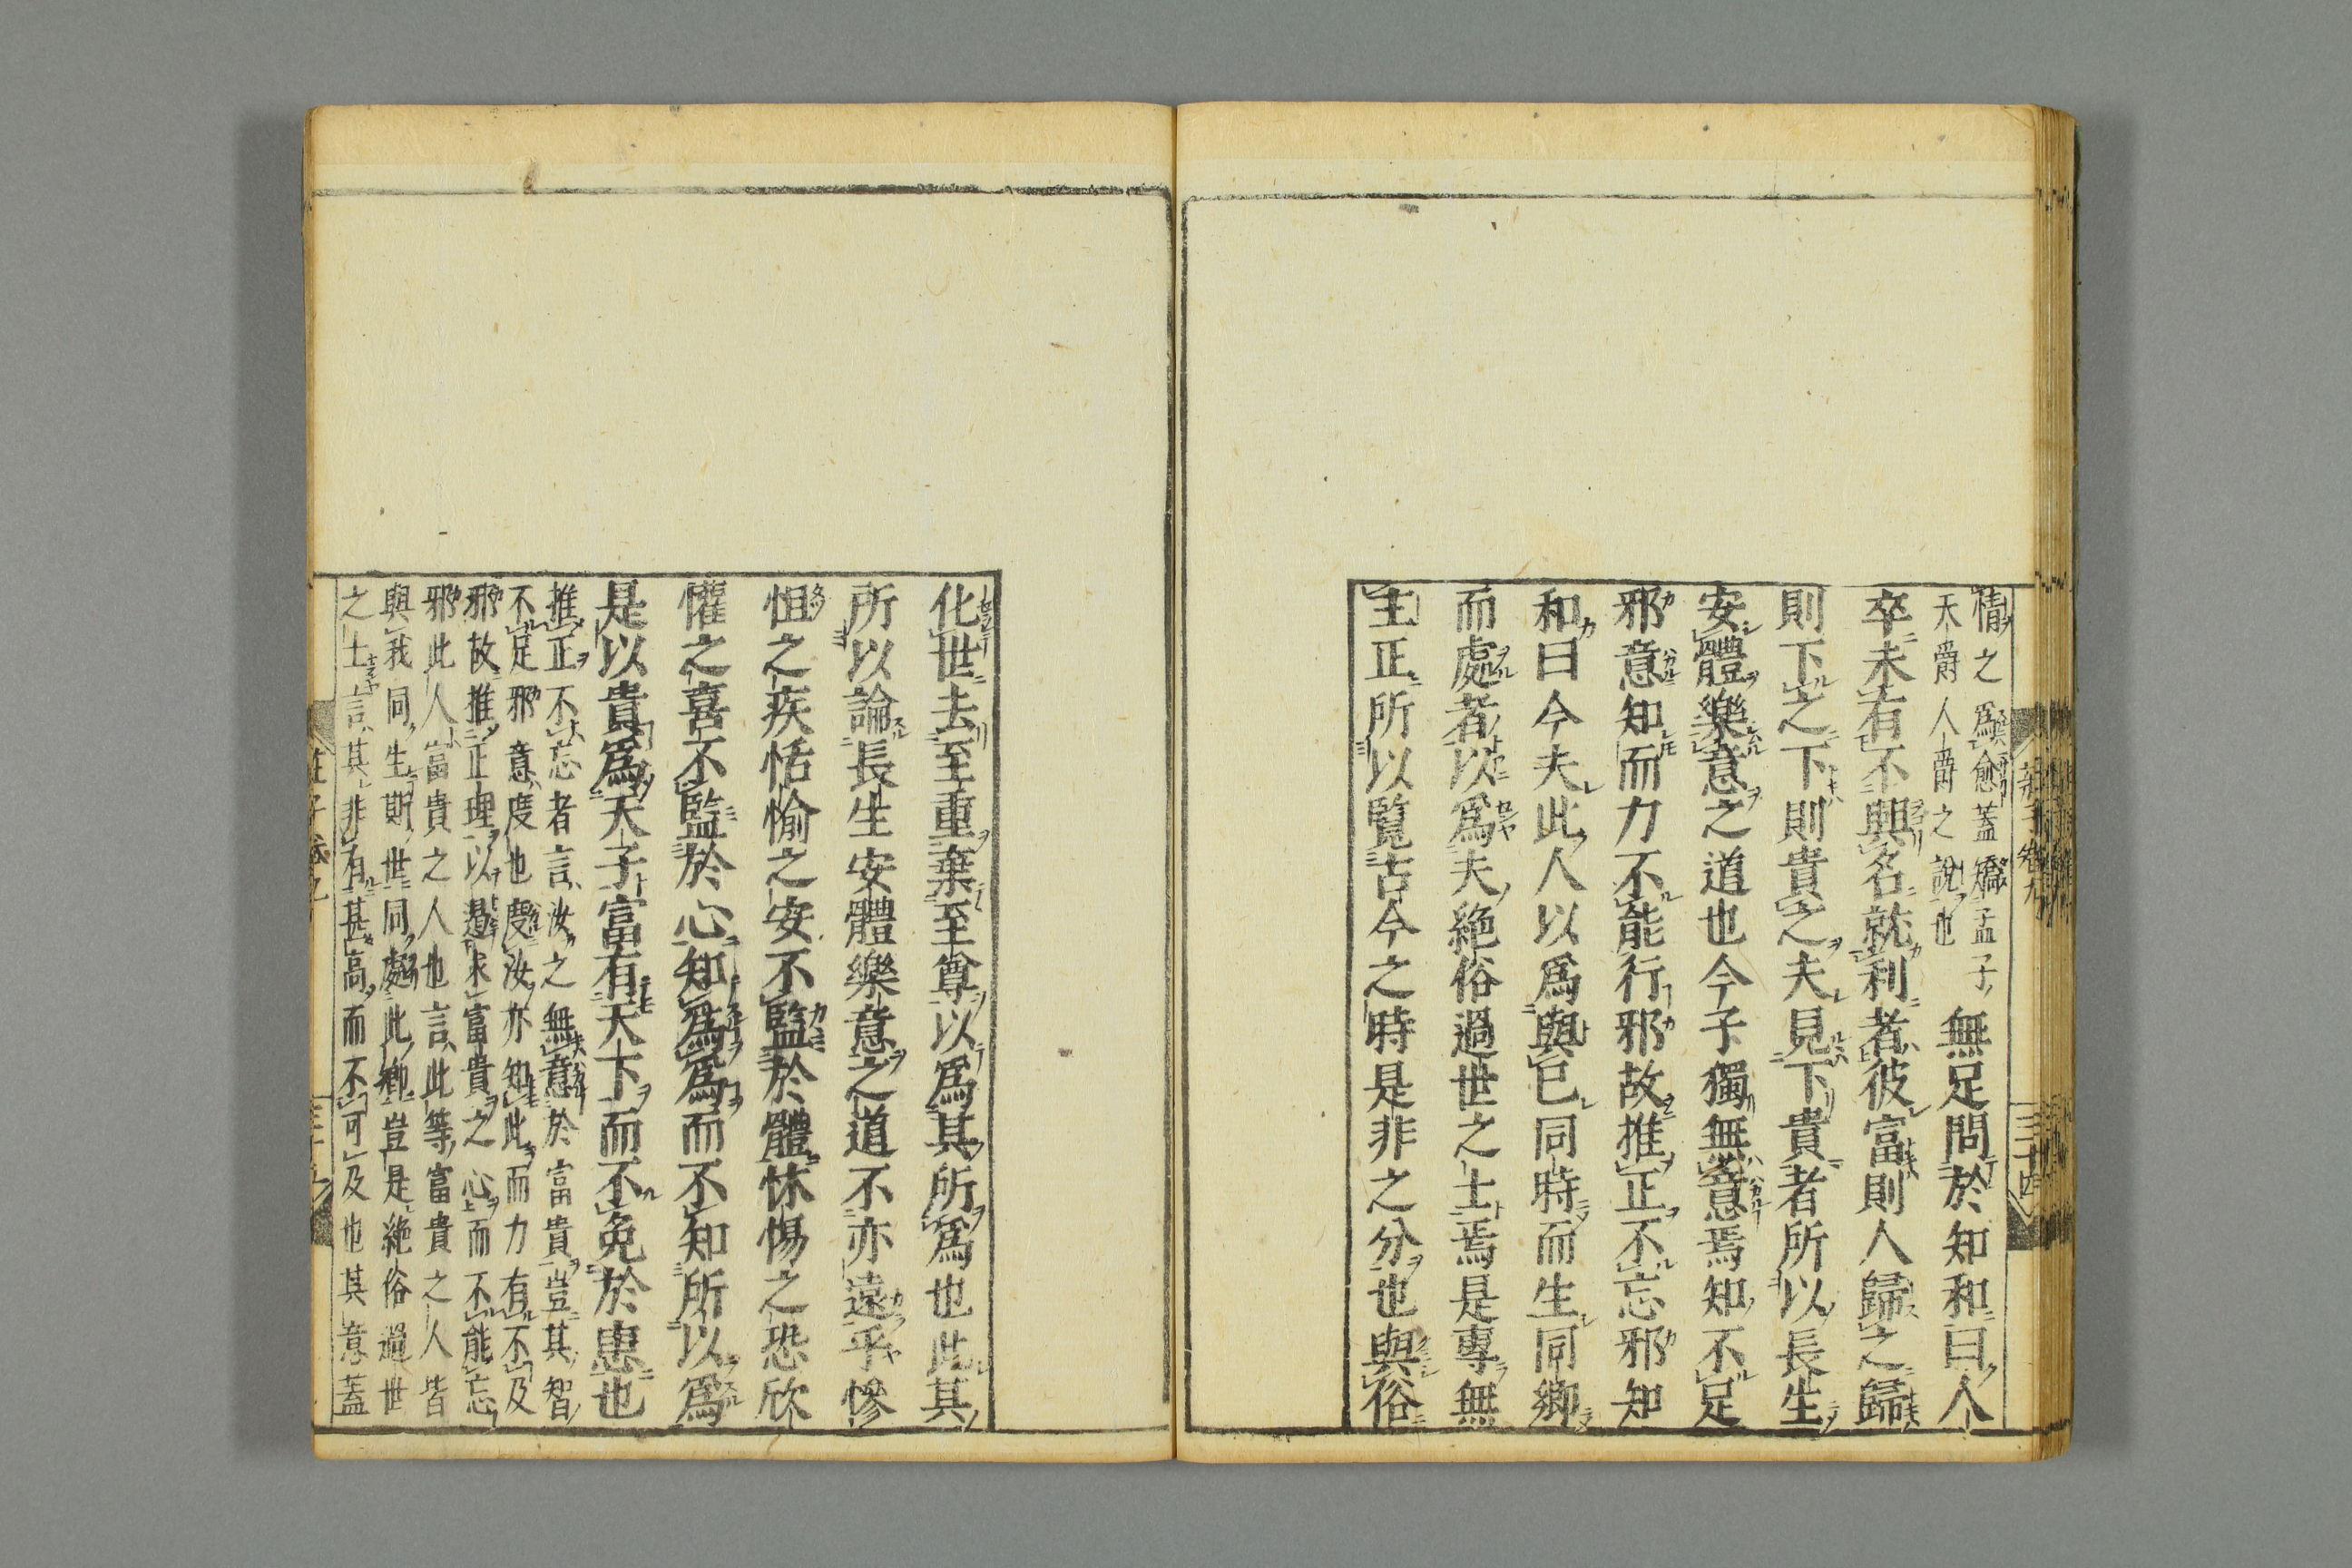 情之爲愈蓋矯孟子
天爵人爵之說也
無足問於知和曰人
卒未有不興名就利者彼富則人歸之歸
則下之下則貴之夫見下貴者所以長生
安體樂意之道也今子獨無意焉知不足
邪意知而力不能行邪故推正不忘邪知
和曰今夫此人以爲與已同時而生同鄉
而處者以爲夫絶俗過世之士焉是專無
主正所以覽古今之時是非之分也與俗
化世去至重棄至尊以爲其所爲也此其
所以論長生安體樂意之道不亦遠乎慘
怛之疾恬愉之安不監於體怵惕之恐欣
懽之喜不監於心知爲爲而不知所以爲
是以貴爲天子富有天下而不免於患也
推正不忘者言汝之無意於富貴豈其智
不足邪意度也度汝亦知此而力有不及
邪故推正理以遏求富貴之心而不能忘
邪此人富貴之人也言此等富貴之人皆
與我同生期世同處此鄉豈是絶俗過世
之士言其非有甚高而不可及也其意蓋
莊子卷九
三十四